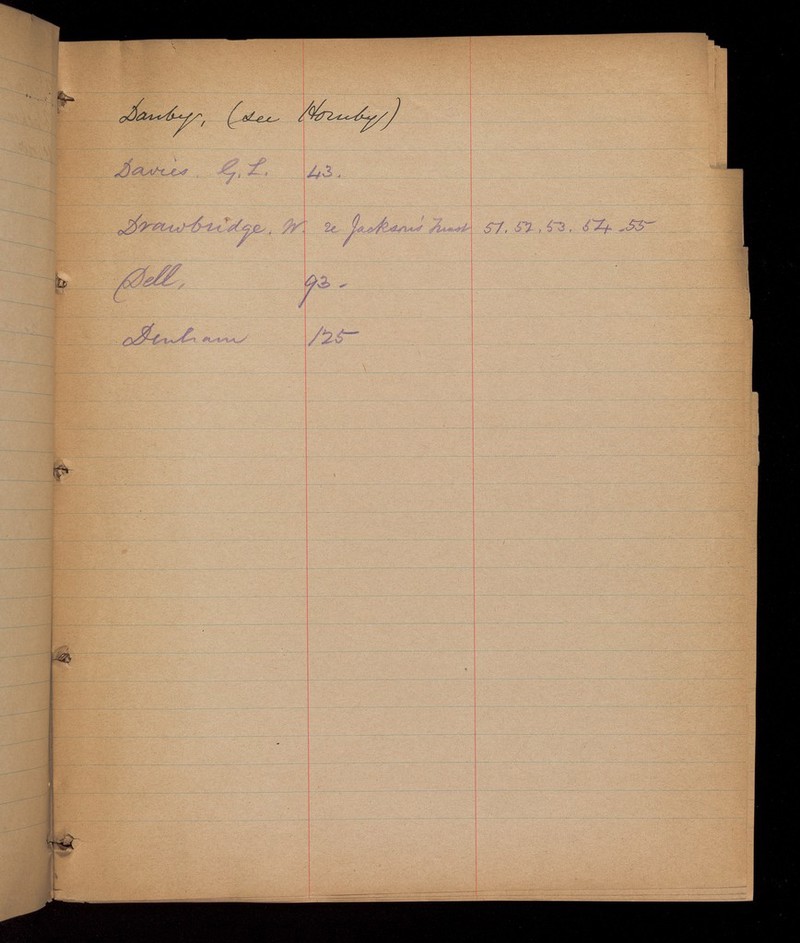 Danby, (see Hornby)
Davies. G. L. 43.
Drawbridge. W. re Jackson's Trust 51. 52. 53. 54. 55
Dell, 93.
Denham 125